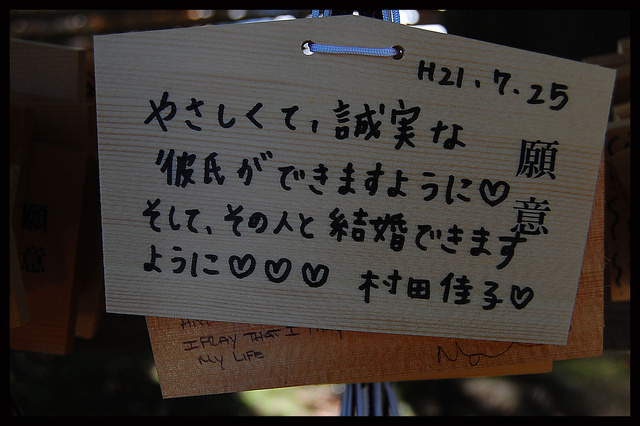 H21.7.25
やさしくて、誠実な
彼氏ができますように♡
そして、その人と結婚できます
ように♡♡♡ 村田佳子♡
願意
I PRAY THAT I
MY LIFE
願意